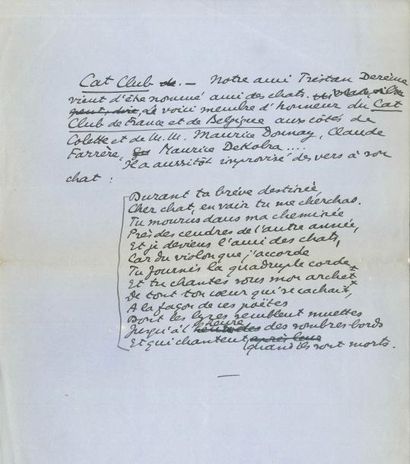 Cat Club de. — Notre ami Tristan Derème
vient d'être nommé ami des chats.
peut dire, Le voici membre d'honneur du Cat
Club de France et de Belgique aux côtés de
Colette et de M.M. Maurice Donnay, Claude
Farrère, Maurice Dekobra....
Il a aussitôt improvisé des vers à son
chat :
Durant ta brève destinée,
Cher chat, en vain tu me cherchas.
Tu mourus dans ma cheminée
Près des cendres de l'autre année,
Et je deviens l'ami des chats,
Car du violon que j'accorde
Tu fournis la quadruple corde
Et tu chantes sous mon archet
De tout ton cœur qui se cachait,
A la façon de ces poètes
Dont les lyres semblent muettes
Jusqu'à l'heure des sombres bords
Et qui chantent après leur
quand ils sont morts.